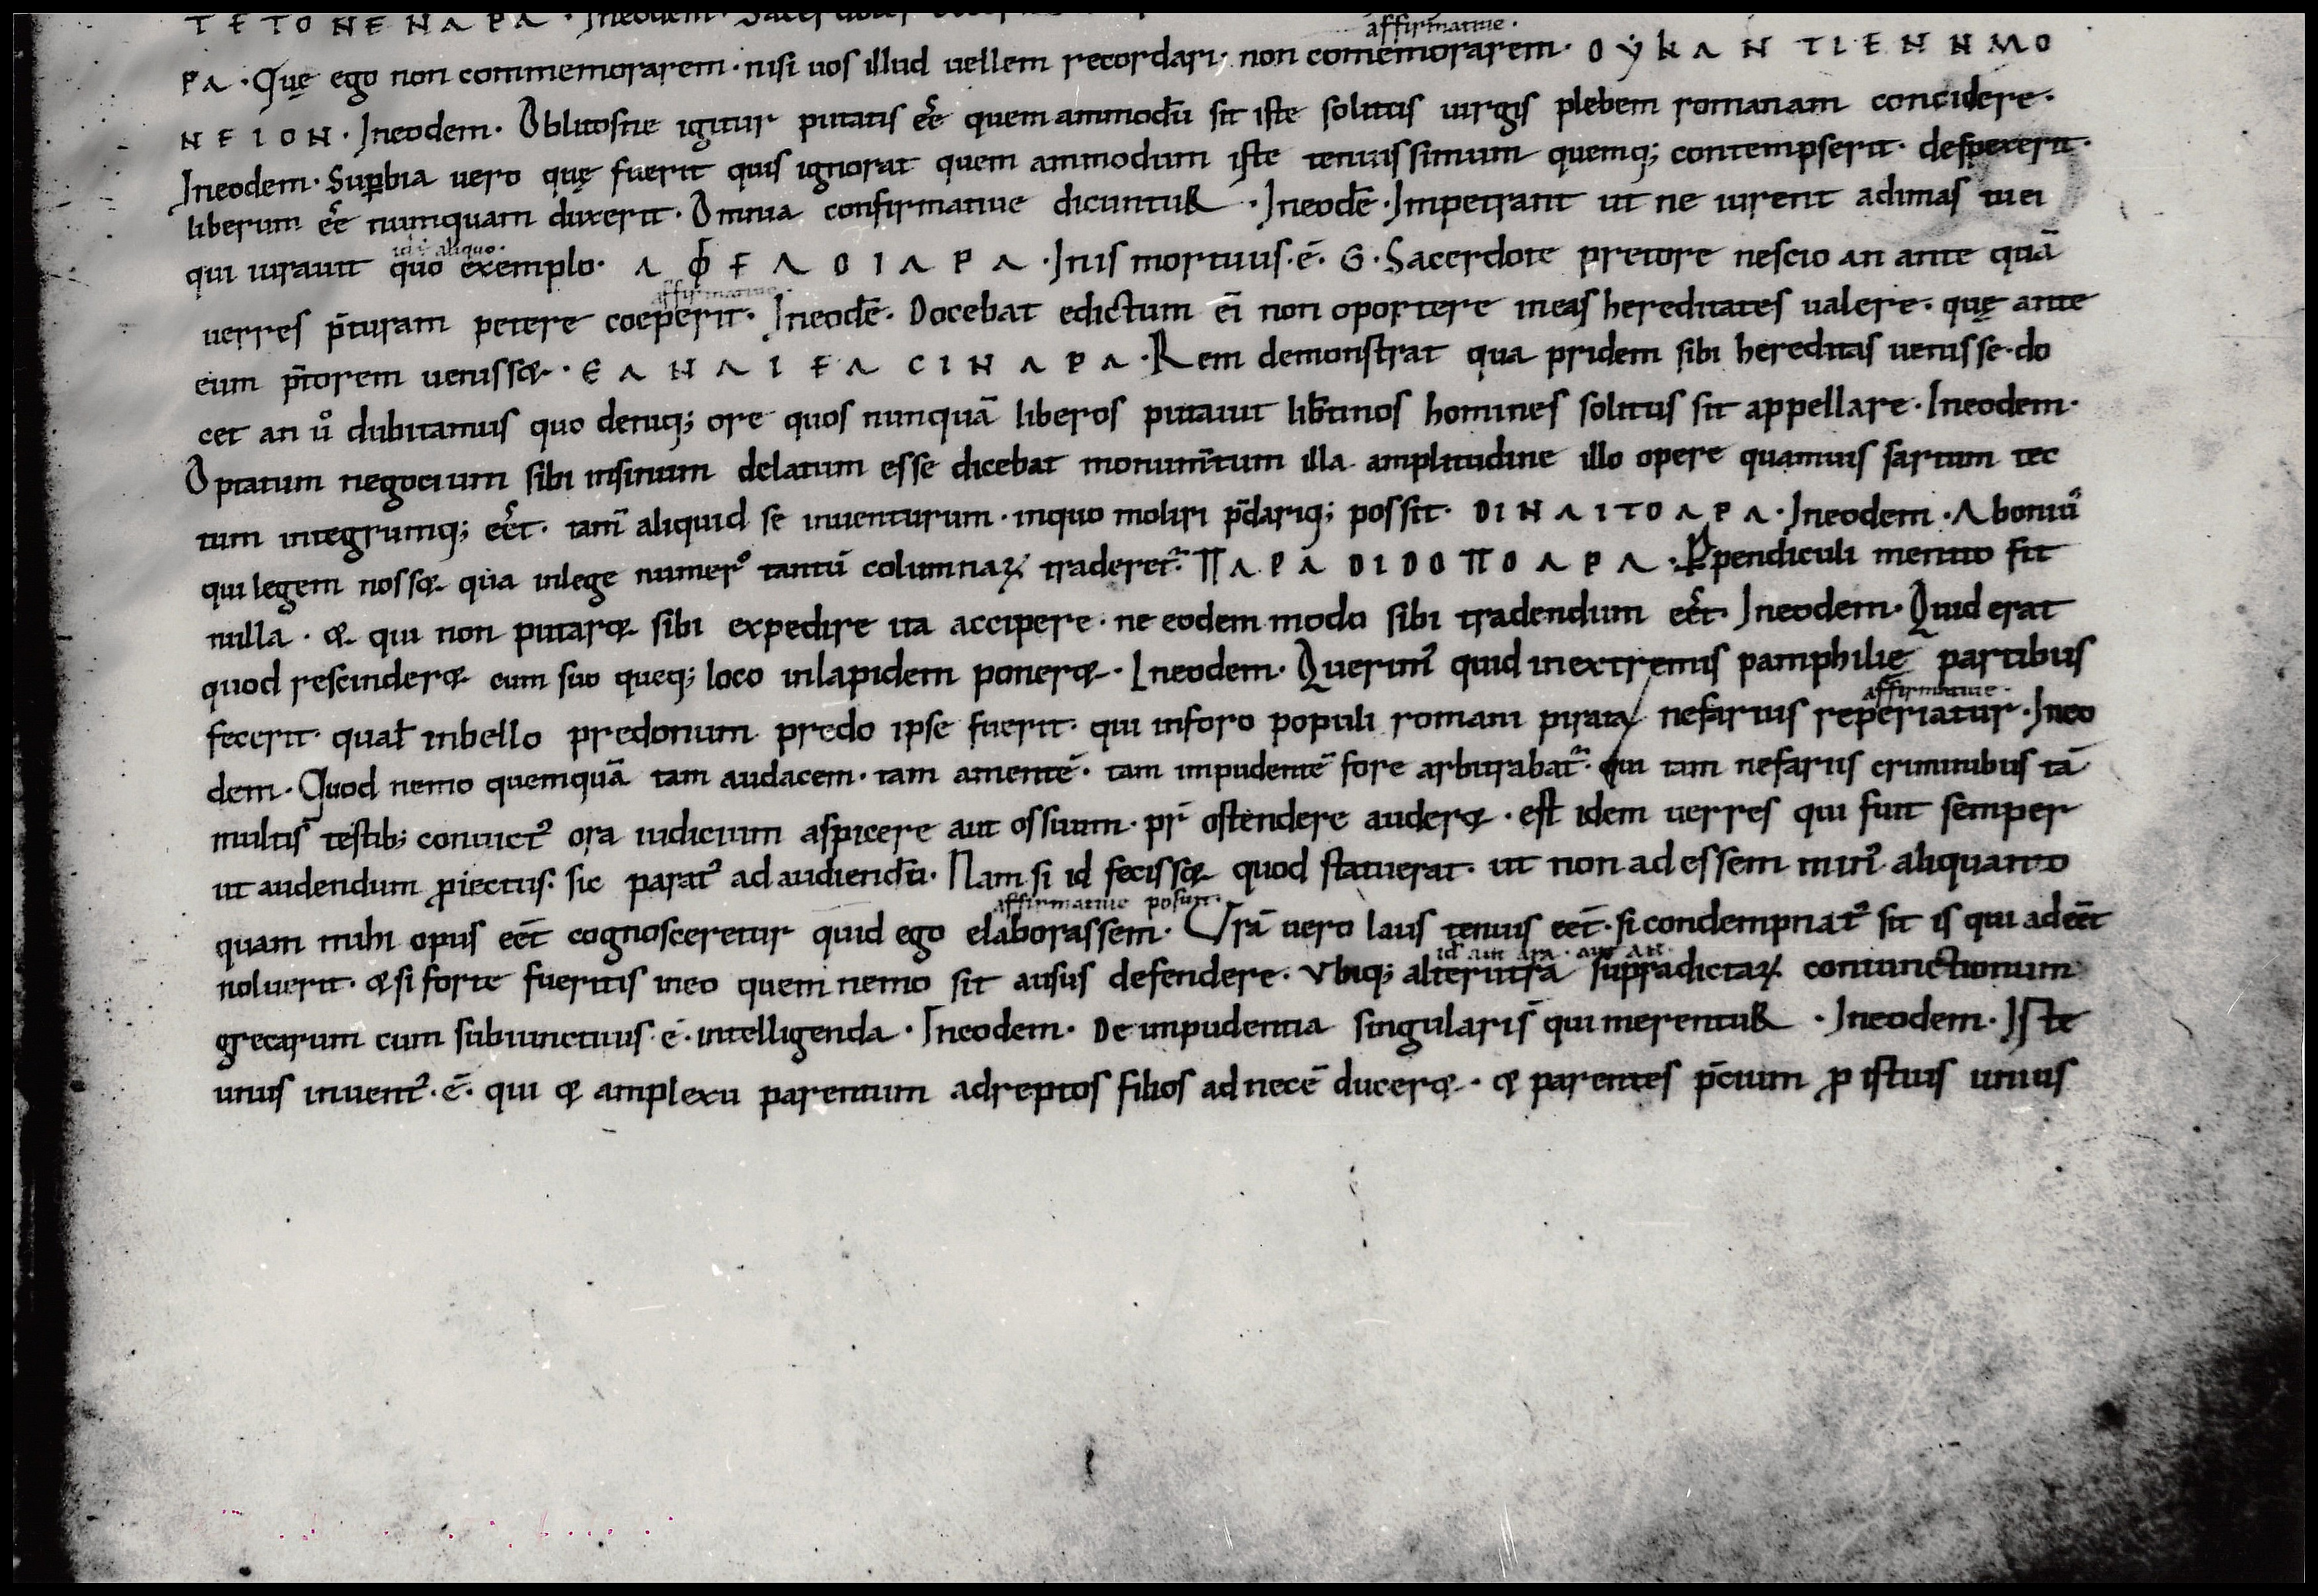 ΤΕΤΟΝΕΝΑΡΑ · Ineodem·
affirmatiue·
ΡΑ · Quę ego non commemorarem · nisi uos illud uellem recordari· non comemorarem· ΟΥΚΑΝ ΤΙΕΝΗΜΟ
ΝΕΙΟΝ · Ineodem· Oblitosne igitur putatis eē quem ammodū sit iste solitus uirgis plebem romanam concidere·
Ineodem· Supbia uero quę fuerit quis ignorat quem ammodum iste tenuissimum quemq; contempserit· despexerit·
liberum eē numquam duxerit· Omnia confirmatiue dicuntuR · Ineodē · Impetrant ut ne iurent adimas tu ei
aliquo·
qui iurauit quo exemplo· ΛΦΕΛΟΙΑΡΑ · Inis mortuus · ē · G · Sacerdote pretore nescio an ante quā
affirmatiue·
uerres p̄turam petere coeperit· Ineodē· Docebat edictum ēi non oportere ineas hereditates ualere· quę ante
eum p̄torem uenisset · ЄΛΗΛΙΕΛ CΙΝ ΑΡΑ · Rem demonstrat qua pridem sibi hereditas uenisse·do
cet an uͦ dubitamus quo deniq; ore quos nunquā liberos putauit lib̄tinos homines solitus sit appellare · Ineodem·
Optatum negocium sibi insinum delatum esse dicebat monum̄tum illa amplitudine illo opere quamuis sartum tec
tum integrumq; eēt· tam̄ aliquid se inuenturum · inquo moliri p̄dariq; possit· ΟΙΝΛΙΤΟΑΡΑ · Ineodem · Aboniū
qui legem nosset qua inlege numer tantū columnaꝝ traderet᷑ ΠΑΡΑΔΙΔΟΠΟΑΡΑ · Ꝑpendiculi mentio fit
nulla · & qui non putaret sibi expedire ita accipere · ne eodem modo sibi tradendum eēt· Ineodem· Quid erat
quod rescinderet cum suo queq; loco inlapidem poneret· Ineodem· Querim̄ quid inextremis pamphilię partibus
affirmatiue·
fecerit· qual̄ inbello predonum predo ipse fuerit· qui inforo populi romani pirata nefarius reperiatur · Ineo
dem · Quod nemo quemquā tam audacem · tam amentē· tam impudentē fore arbitrabat᷑· qui tam nefariis criminibus tā
multis testib; conuictꝰ ora iudicium aspicere aut os suum· pr̄ ostendere auderet · est idem uerres qui fuit semper
ut audendum ꝓiectus· sic paratꝰ ad audiend̄u· Nam si id fecisset quod statuerat· ut non adessem mīn aliquanto
affirmatiue posuit·
quam mihi opus eēt cognosceretur quid ego elaborassem· Ur̄a uero laus tenuis eēt · si condempnatꝰ sit is qui adeēt
id aut ara · aut an·
noluerit· & si forte fueritis ineo quem nemo sit ausus defendere· Vbiq; alterutra supradictaꝝ coniunctionum
grecarum cum subiunctiuis · ē · intelligenda · Ineodem· De impudentia singularis̄ qui merentuR · Ineodem· Iste
unus inuentꝰ · ē · qui & amplexu parentum adreptos filios ad necē duceret· & parentes p̄cium ꝓ istuis unius